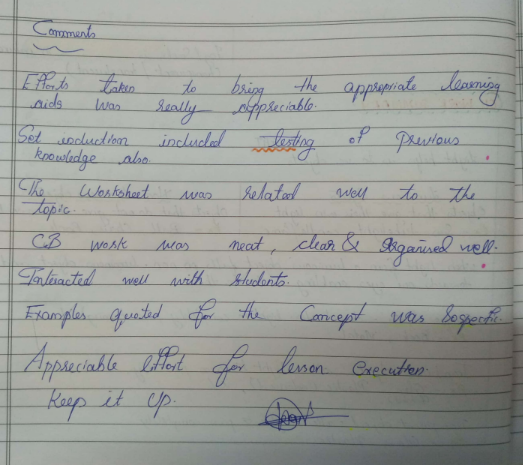 Comments
Efforts taken to bring the appropriate learning
aids was really appreciable.
Set induction included testing of previous
knowledge also.
The Worksheet was related well to the
topic.
CB work was neat, clear & organised well.
Interacted well with students.
Examples quoted for the Concept was
Appreciable effort for lesson execution.
Keep it up.